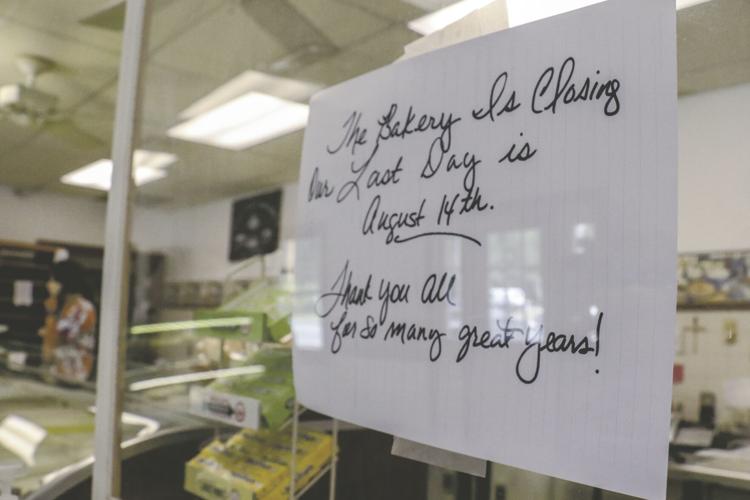 The Bakery Is Closing
Our Last Day is
August 14th.
Thank you All
for So many great years!